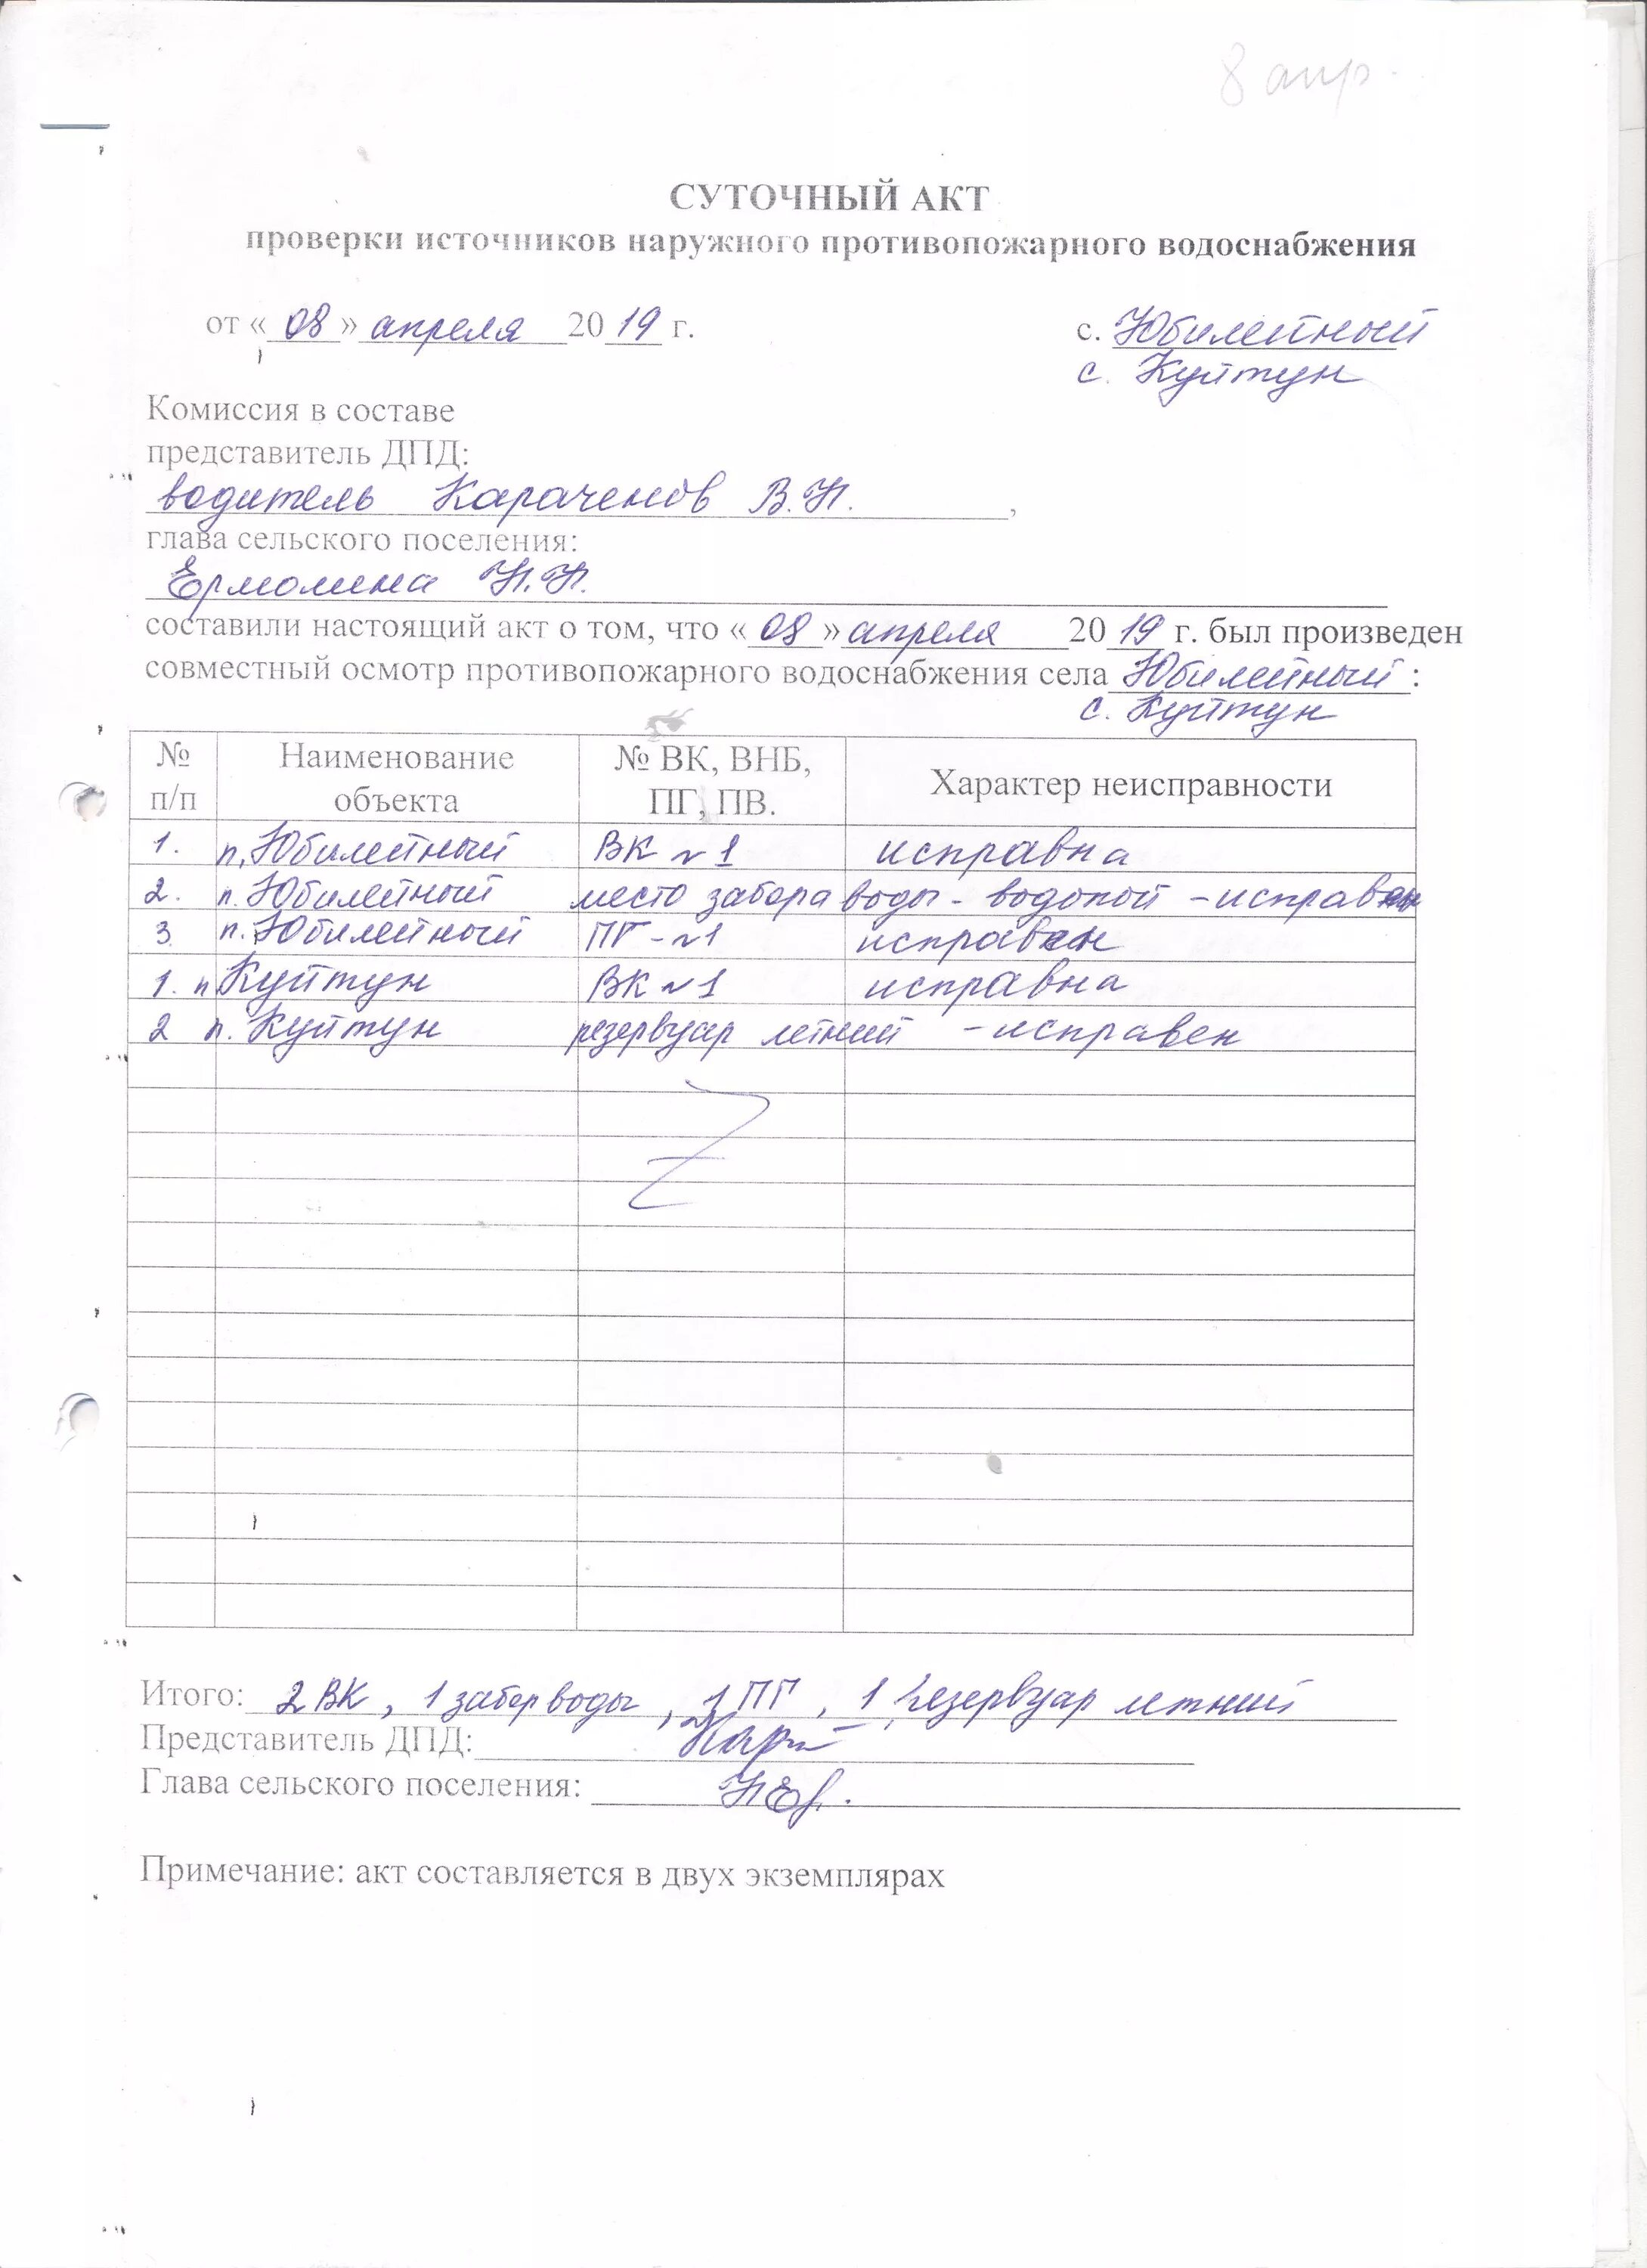 8 апр.
СУТОЧНЫЙ АКТ
проверки источников наружного противопожарного водоснабжения
от «08» апреля 2019 г. с. Юбилейный
с. Куйтун
Комиссия в составе
представитель ДПД:
водитель Караченов В.Н.,
глава сельского поселения:
Ермолина Н.Н.
составили настоящий акт о том, что «08» апреля 2019 г. был произведен
совместный осмотр противопожарного водоснабжения села Юбилейный:
с. Куйтун
№ п/п Наименование объекта № ВК, ВНБ, ПГ, ПВ. Характер неисправности
1. п. Юбилейный ВК №1 исправна
2. п. Юбилейный место забора воды - водопой - исправен
3 п. Юбилейный ПГ - №1 исправен
1. п Куйтун ВК №1 исправна
2 п. Куйтун резервуар летний - исправен
Итого: 2 ВК, 1 забор воды, 1 ПГ, 1 резервуар летний
Представитель ДПД:
Глава сельского поселения:
Примечание: акт составляется в двух экземплярах